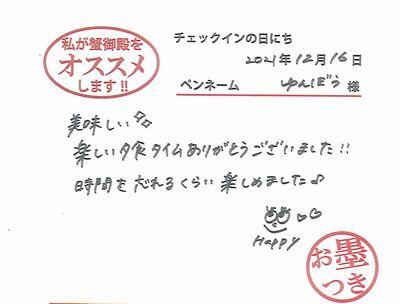 私が蟹御殿を
オススメ
します!!
チェックインの日にち
2021年12月16日
ペンネーム ゆんぼう 様
美味しい♪♪
楽しい夕食タイムありがとうございました!!
時間を忘れるくらい楽しめました♪
Happy
お墨
つき